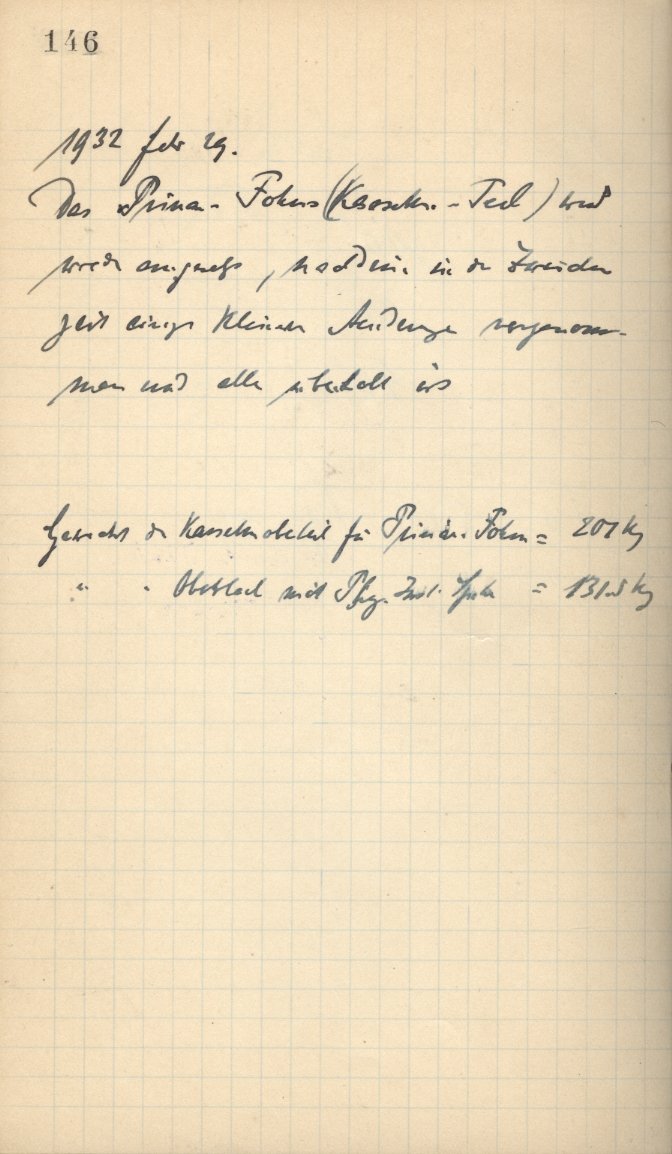 146
1932 Febr 29.
Das Primär-Fokus (Kassetten-Teil) wird
wieder angesetzt, nachdem in der Zwischen
zeit einige kleinere Änderungen vorgenom-
men und alles überholt ist
Gewicht der Kassettenobeteil für Primär-Fokus = 201 kg
" " mit Phg. = kg